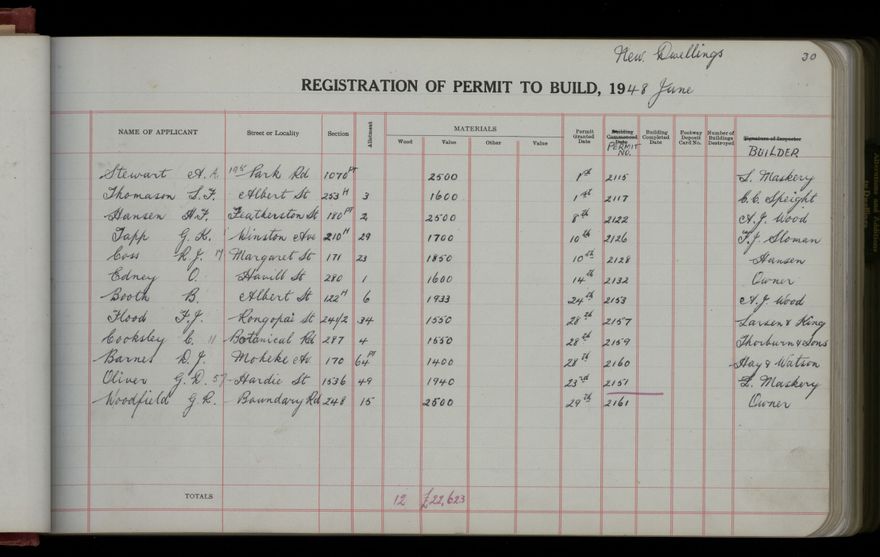 New Dwellings 30
REGISTRATION OF PERMIT TO BUILD, 1948 June
NAME OF APPLICANT Street or Locality Section Allotment MATERIALS Wood Value Other Value Permit Granted Date Building Commenced Date PERMIT NO. Building Completed Date Footway Deposit Card No. Number of Buildings Destroyed Signature of Inspector BUILDER
Stewart A. 195 Park Rd 1070 PT 2500 1st 2115 L. Maskery
Thomason S.F. Albert St 253 H 3 1600 1st 2117 C.C. Speight
Hansen A.F. Featherston St 180 PT 2 2500 8th 2122 A.J. Wood
Tapp G.K. Winston Ave 210 H 29 1700 10th 2126 F.J. Sloman
Coss R.J. 17 Margaret St 171 23 1850 10th 2128 Hansen
Edney O. Havill St 280 1 1600 14th 2132 Owner
Booth B. Albert St 122 H 6 1933 24th 2153 A.J. Wood
Flood F.J. Rongopai St 241/2 34 1550 28th 2157 Larsen & King
Cooksley C. 11 Botanical Rd 287 4 1550 28th 2159 Thorburn & Sons
Barnes D.J. Mokeke Av 170 64 PT 1400 28th 2160 Hay & Watson
Oliver G.D. 57 Hardie St 1536 49 1940 23rd 2151 L. Maskery
Woodfield G.R. Boundary Rd 248 15 2500 29th 2161 Owner
TOTALS 12 £22,623